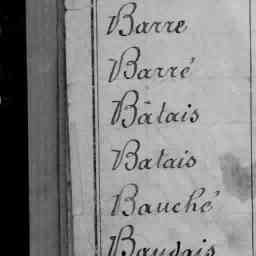 Barre
Barré
Bâtais
Batais
Bauché
Baudais